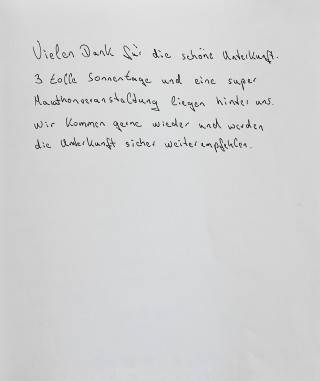 Vielen Dank für die schöne Unterkunft.
3 tolle Sonnentage und eine super
Marathonveranstaltung liegen hinter uns.
Wir kommen gerne wieder und werden
die Unterkunft sicher weiterempfehlen.